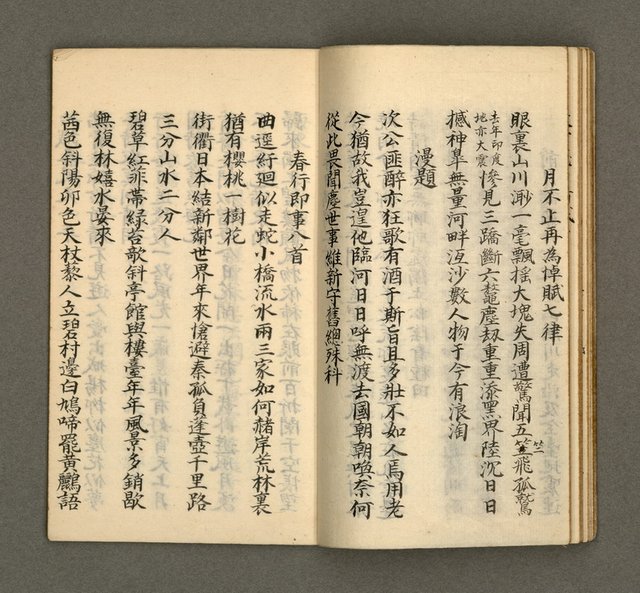 月不止再為悼賦七律
眼裏山川渺一毫飄搖大塊失周遭驚聞五竺飛孤鷲
去年印度地亦大震慘見三蹻斷六鼇塵刼重重漆黑界陸沉日日
撼神皐無量河畔沍沙數人物于今有浪淘
漫題
次公匪醉亦狂歌有酒于斯旨且多壯不如人焉用老
今猶故我豈逞他臨河日日呼無渡去國朝朝喚奈何
從此畏聞塵世事維新守舊總殊科
春行即事八首
曲逕紆廻似走蛇小橋流水兩三家如何赭岸荒林裏
猶有櫻桃一樹花
街衢日本結新鄰世界年來愴避秦孤負蓬壺千里路
三分山水二分人
碧草紅非帶綠苔歌斜亭館與樓臺年年風景多銷歇
無復林嬉水晏來
茜色斜陽卯色天杖藜人立碧村邊白鳩啼罷黃鸝語